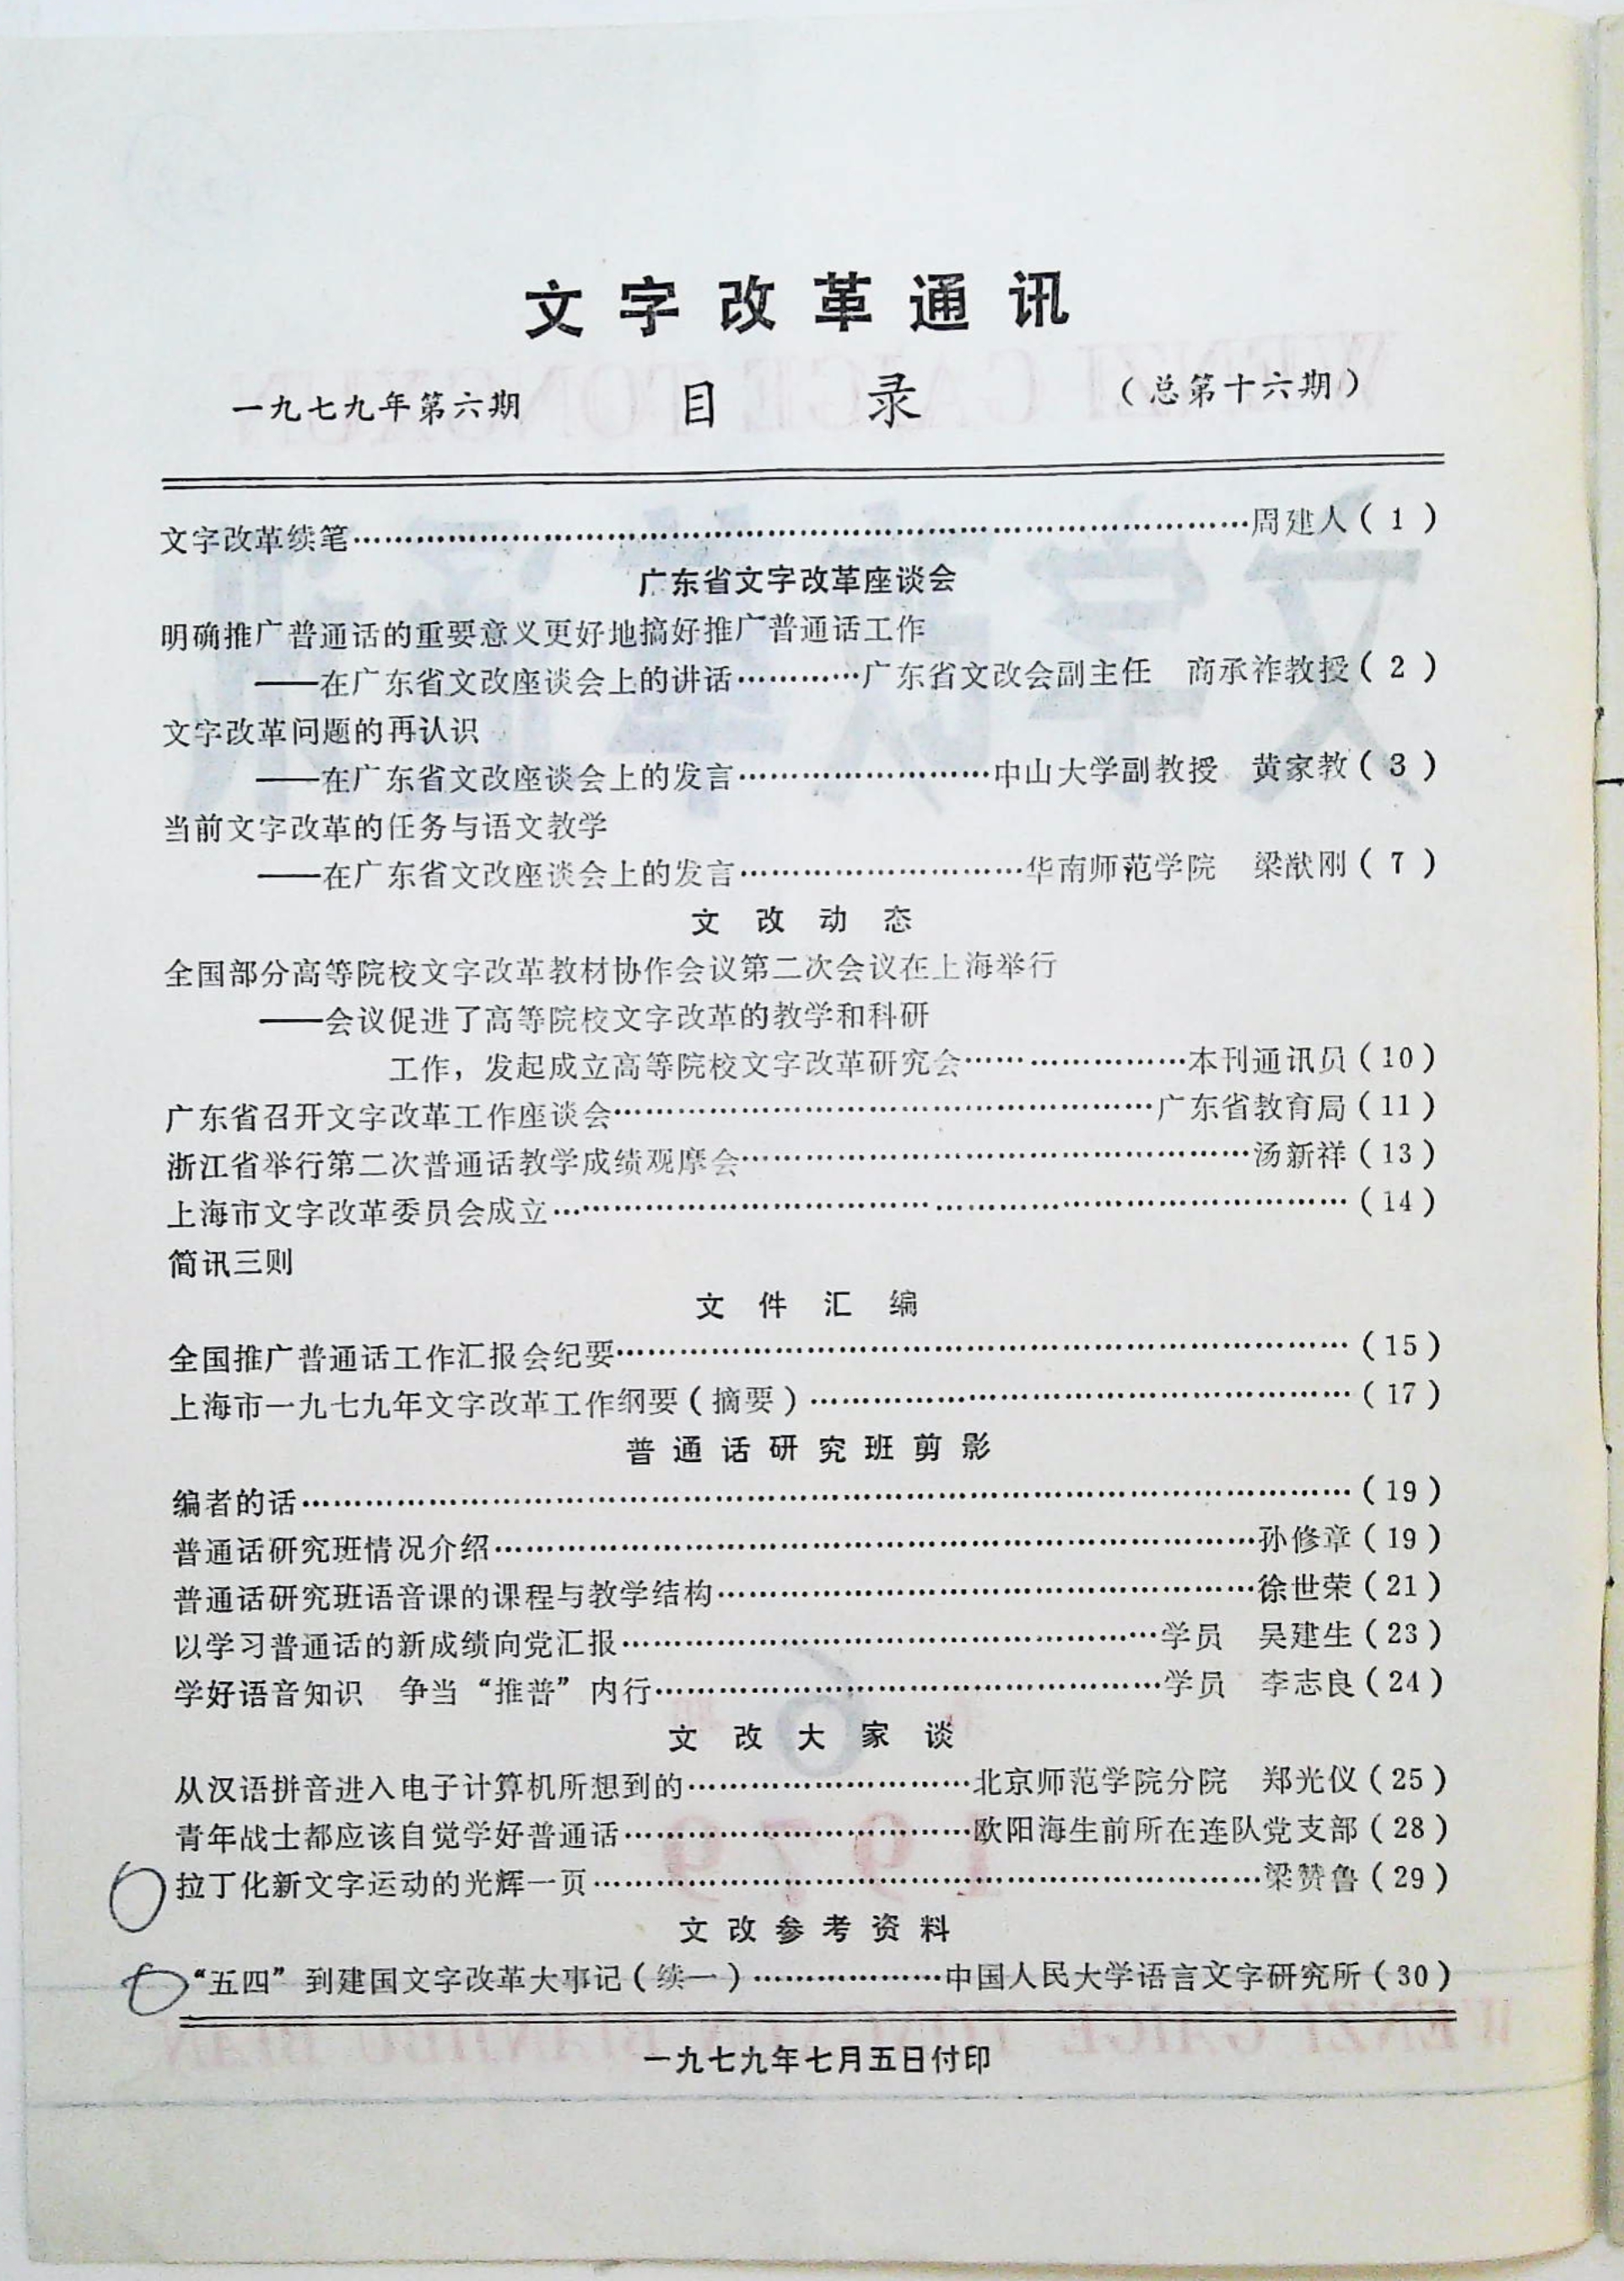 文字改革通讯
一九七九年第六期 目录 （总第十六期）
文字改革续笔……周建人（1）
广东省文字改革座谈会
明确推广普通话的重要意义更好地搞好推广普通话工作
——在广东省文改座谈会上的讲话……广东省文改会副主任 商承祚教授（2）
文字改革问题的再认识
——在广东省文改座谈会上的发言……中山大学副教授 黄家教（3）
当前文字改革的任务与语文教学
——在广东省文改座谈会上的发言……华南师范学院 梁猷刚（7）
文改动态
全国部分高等院校文字改革教材协作会议第二次会议在上海举行
——会议促进了高等院校文字改革的教学和科研
工作，发起成立高等院校文字改革研究会……本刊通讯员（10）
广东省召开文字改革工作座谈会……广东省教育局（11）
浙江省举行第二次普通话教学成绩观摩会……汤新祥（13）
上海市文字改革委员会成立……（14）
简讯三则
文件汇编
全国推广普通话工作汇报会纪要……（15）
上海市一九七九年文字改革工作纲要（摘要）……（17）
普通话研究班剪影
编者的话……（19）
普通话研究班情况介绍……孙修章（19）
普通话研究班语音课的课程与教学结构……徐世荣（21）
以学习普通话的新成绩向党汇报……学员 吴建生（23）
学好语音知识 争当“推普”内行……学员 李志良（24）
文改大家谈
从汉语拼音进入电子计算机所想到的……北京师范学院分院 郑光仪（25）
青年战士都应该自觉学好普通话……欧阳海生前所在连队党支部（28）
拉丁化新文字运动的光辉一页……梁赞鲁（29）
文改参考资料
“五四”到建国文字改革大事记（续一）……中国人民大学语言文字研究所（30）
一九七九年七月五日付印